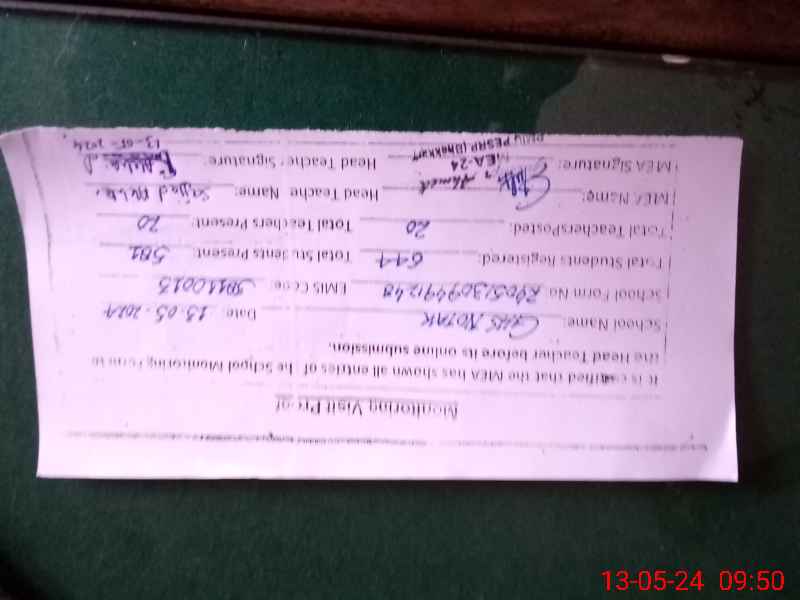 Monitoring Visit Proof
It is certified that the MEA has shown all entries of the School Monitoring Form to
the Head Teacher before its online submission.
School Name: GHS NOTAK Date: 13-05-2024
School Form No: EMIS Code:
Total Students Registered: Total Students Present: 581
Total TeachersPosted: 20 Total Teachers Present: 20
MEA Name: Head Teacher Name: Sajjad
MEA Signature: MEA-24 Head Teacher Signature:
13-05-2024
13-05-24 09:50